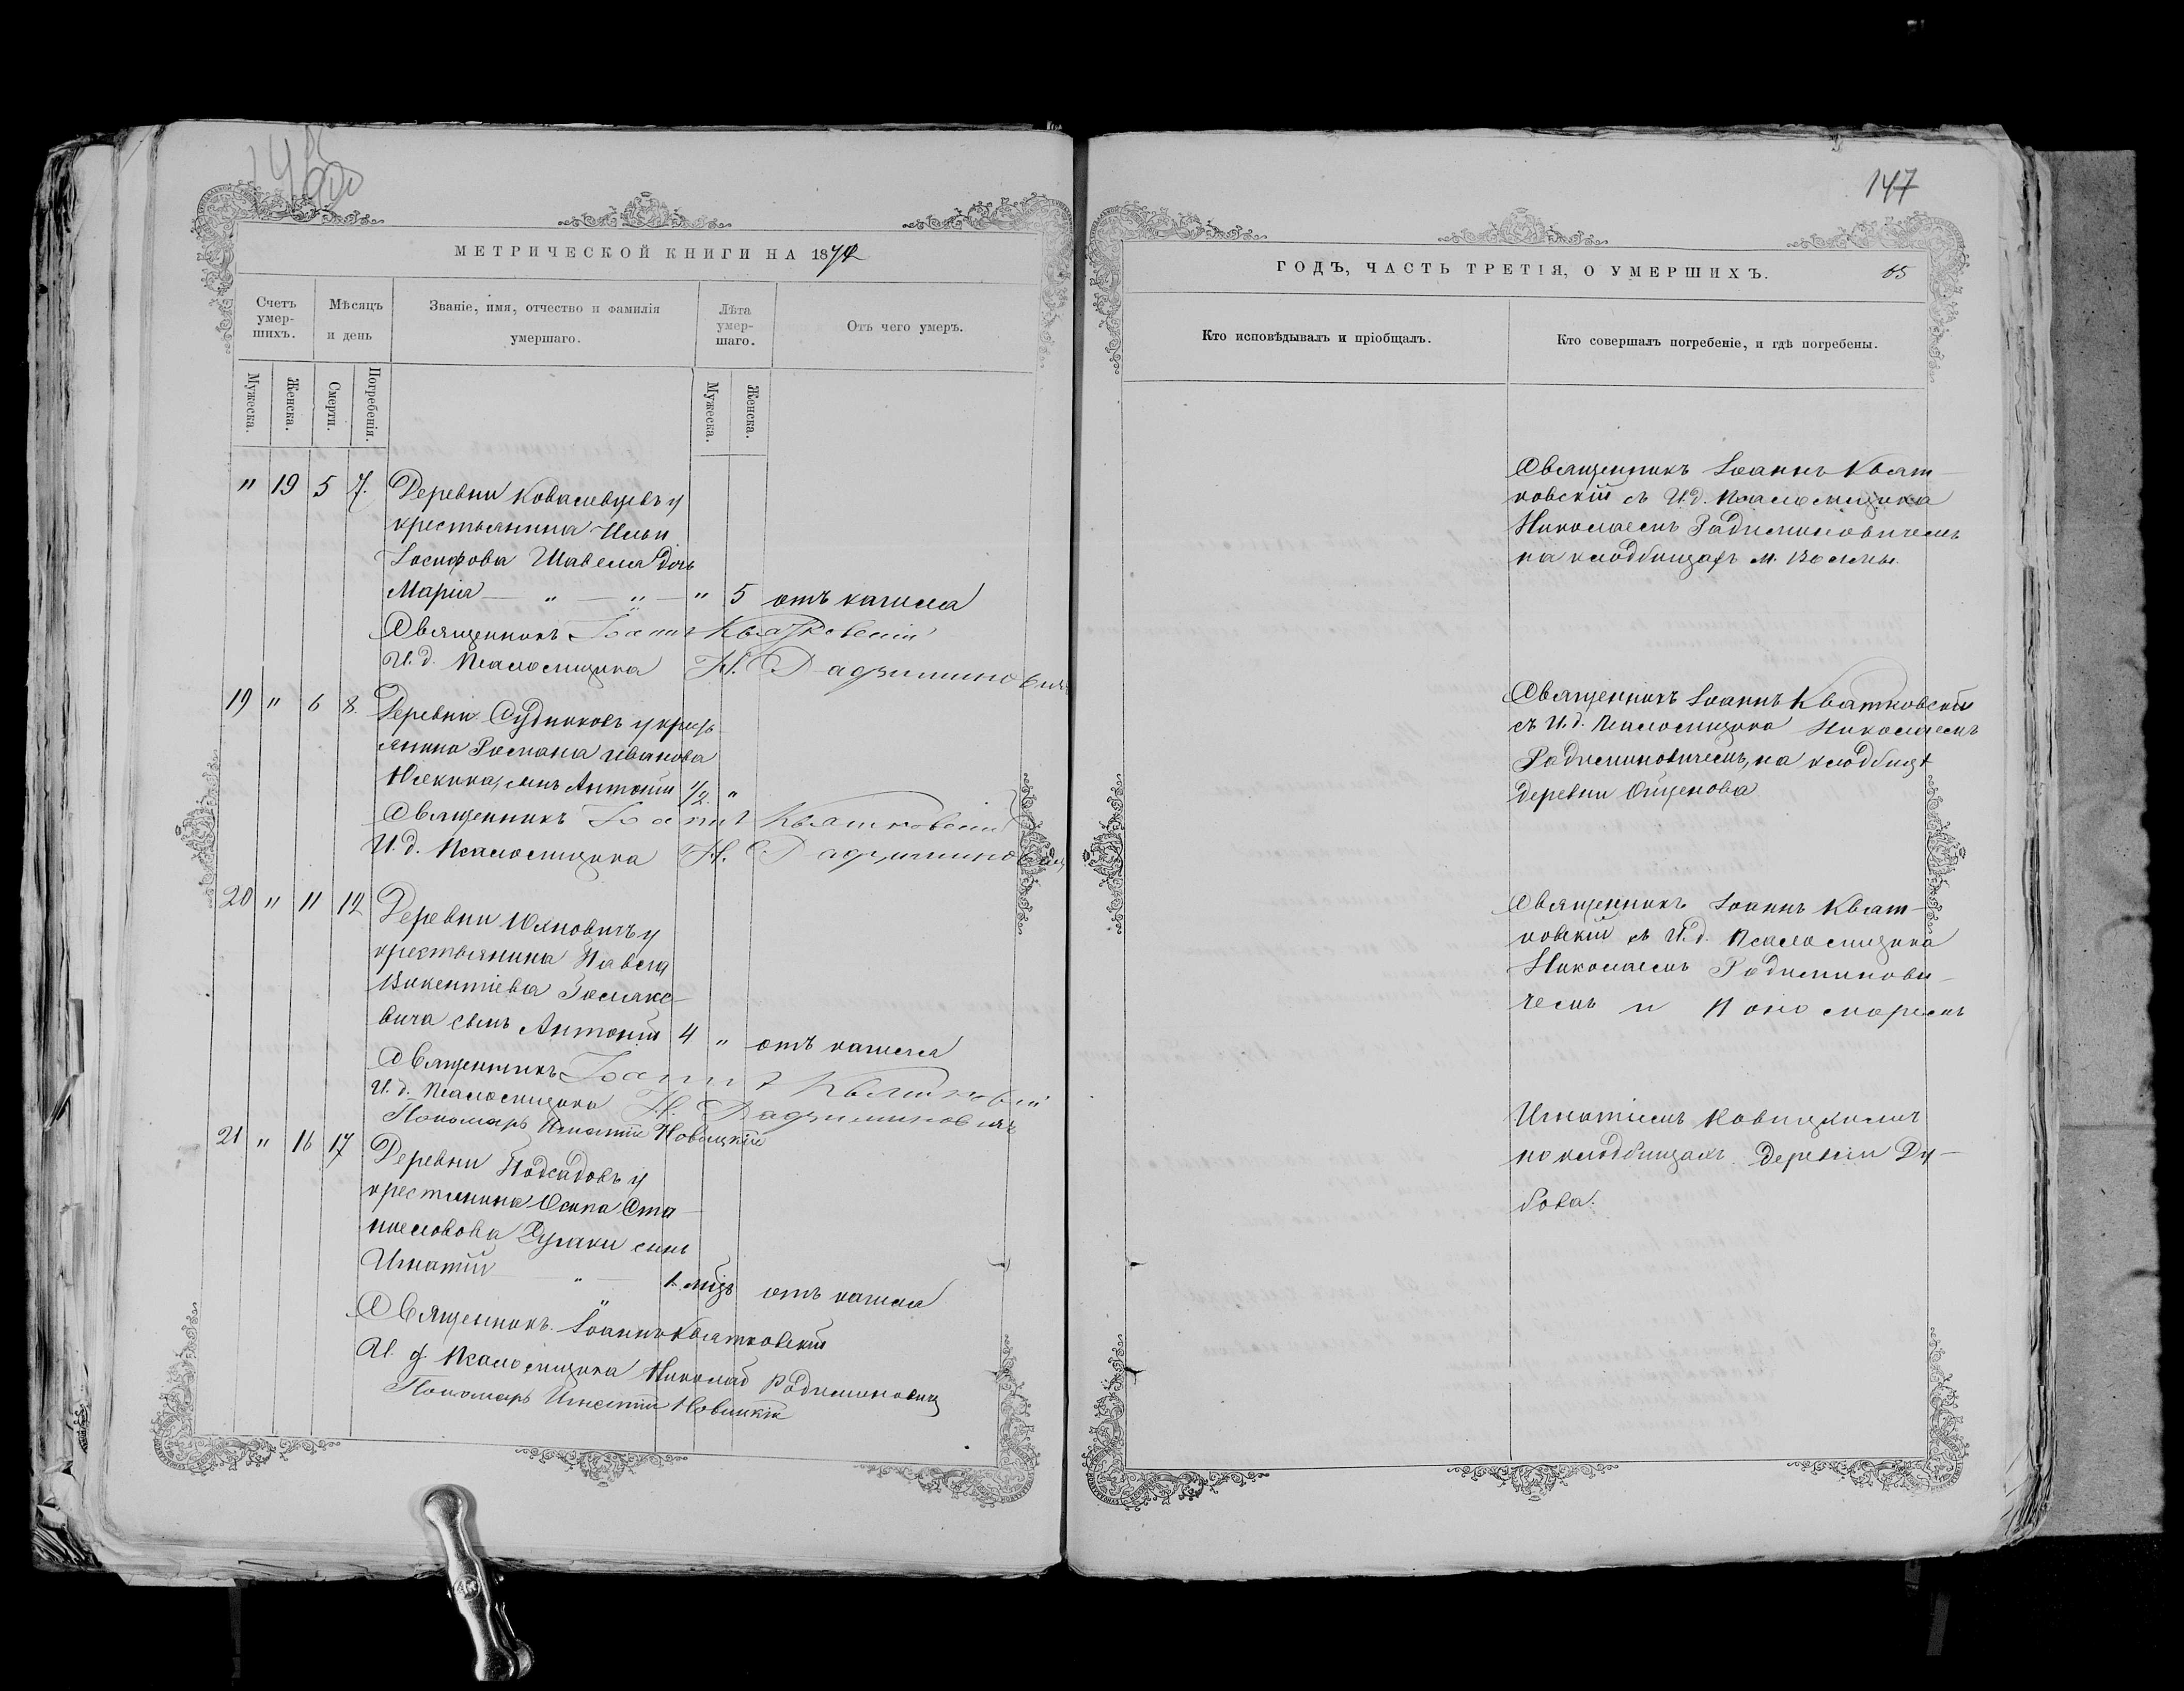 147
МЕТРИЧЕСКОЙ КНИГИ НА 1874
Счетъ умер-шихъ.
Мѣсяцъ и день
Званіе, имя, отчество и фамилія умершаго.
Лѣта умер-шаго.
Отъ чего умеръ.
Мужеска.
Женска.
Смерти.
Погребенія.
Мужеска.
Женска.
" 19 5 7. Деревни Ковалевцевъ у
крестьянина Ильи
Іосифова Шавела дочь
Марія — " — " — " 5 отъ кашля
Священникъ Іоаннъ Квятковскій
И.д. Псаломщика Н. Радзиминовичъ
19 " 6 8. Деревни Судниковъ у кресть
янина Романа Иванова
сынъ Антоній 1/2. "
Священникъ Іоаннъ Квятковскій
И.д. Псаломщика Н. Радзиминовичъ
20 " 11 12 Деревни Юхновичъ у
крестьянина Павла
Викентіева
вича сынъ Антоній 4 " отъ кашля
Священникъ Іоаннъ Квятковскій
И.д. Псаломщика Н. Радзиминовичъ
Пономарь Игнатій Новицкій
21 " 16 17 Деревни Подсадовъ у
крестьянина Осипа Ста
ниславова сынъ
Игнатій — " — 1. мѣц отъ кашля
Священникъ Іоаннъ Квятковскій
И. д. Псаломщика Николай Радиминович
Пономарь Игнатій Новицкій
ГОДЪ, ЧАСТЬ ТРЕТІЯ, О УМЕРШИХЪ.
65
Кто исповѣдывалъ и пріобщалъ.
Кто совершалъ погребеніе, и гдѣ погребены.
Священникъ Іоаннъ Квят
ковскій съ И.д. Псаломщика
Николаемъ Радиминовичемъ
на кладбищахъ м. Волмы.
Священникъ Іоаннъ Квятковскій
съ И.д. Псаломщика Николаемъ
Радиминовичемъ, на кладбищѣ
деревни
Священникъ Іоаннъ Квят-
ковскій съ И.д. Псаломщика
Николаемъ Радиминови-
чемъ и Пономаремъ
Игнатіемъ Новицкимъ
на кладбищахъ деревни Ду-
бова.